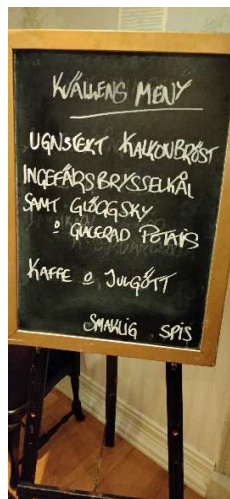 KVÄLLENS MENY
UGNSTEKT KALKONBRÖST
INGEFÄRSBRYSSELKÅL
SAMT GLÖGGSKY
o GLACERAD POTATIS
KAFFE o JULGÖTT
SMAKLIG SPIS